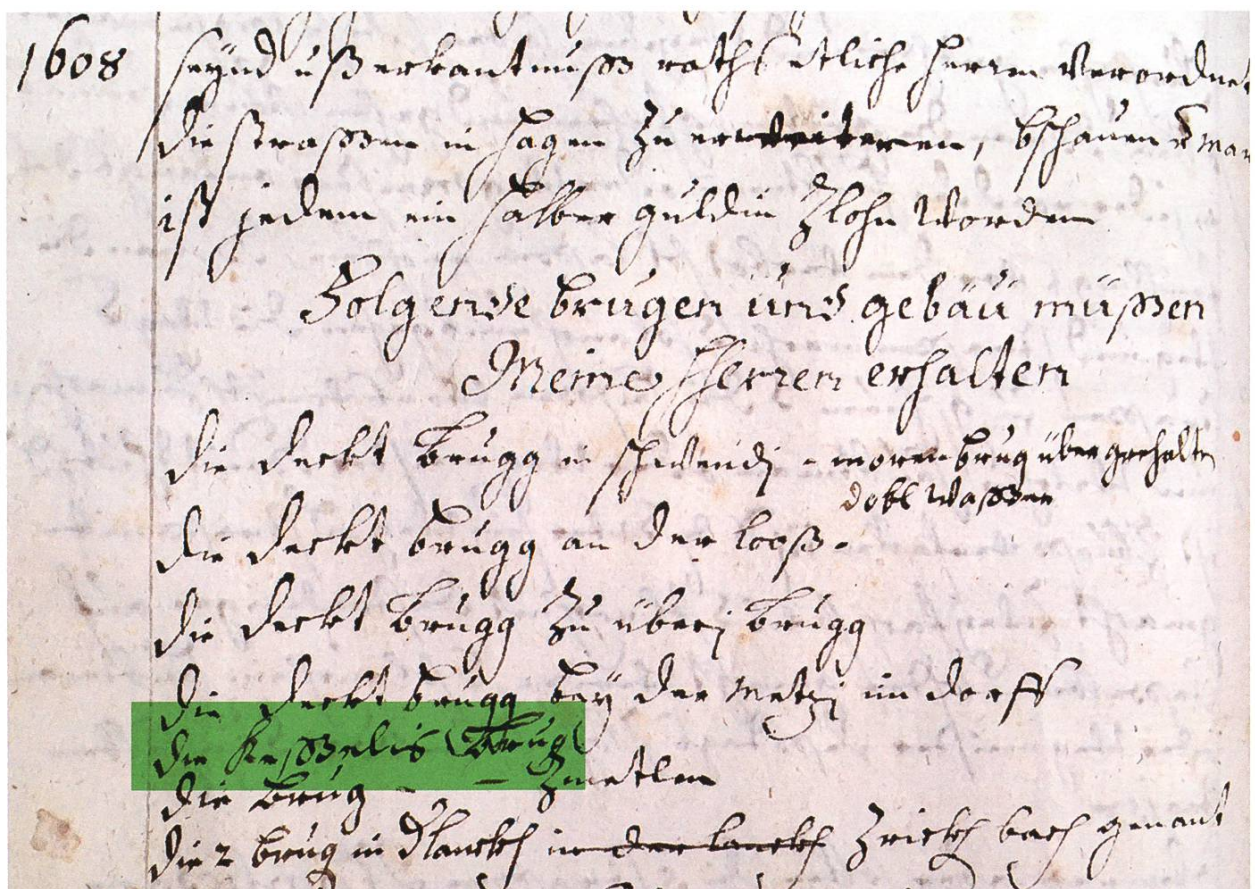 1608 seynd uß erkantnuß raths etliche Herren Verordnet
die straßen in Hagen zu erweiteren, bschauen
ist jedem ein halber guldin Zlohn worden
Folgende brugen und gebäu müßen
Meine Herren erhalten
die deckt Brugg in schwendj - moren brug über
dobl waßer
die deckt brugg an der looß.
die deckt Brugg Zu überj Brugg
die deckt brugg bey der Metzj im dorff
die Keßelis Brug
die Brug - - Zmetlen
die 2 brug in in der bach genant